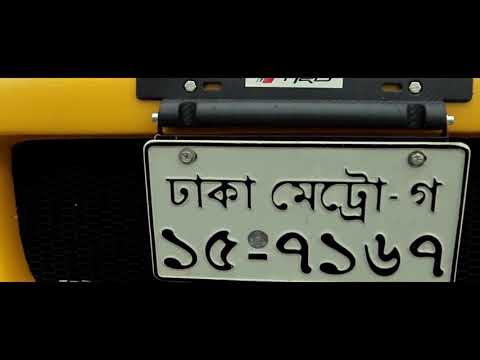 TRD
ঢাকা মেট্রো-গ
১৫-৭১৬৭